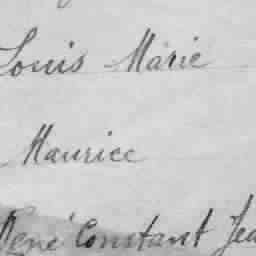 Louis Marie
Maurice
René Constant Jea